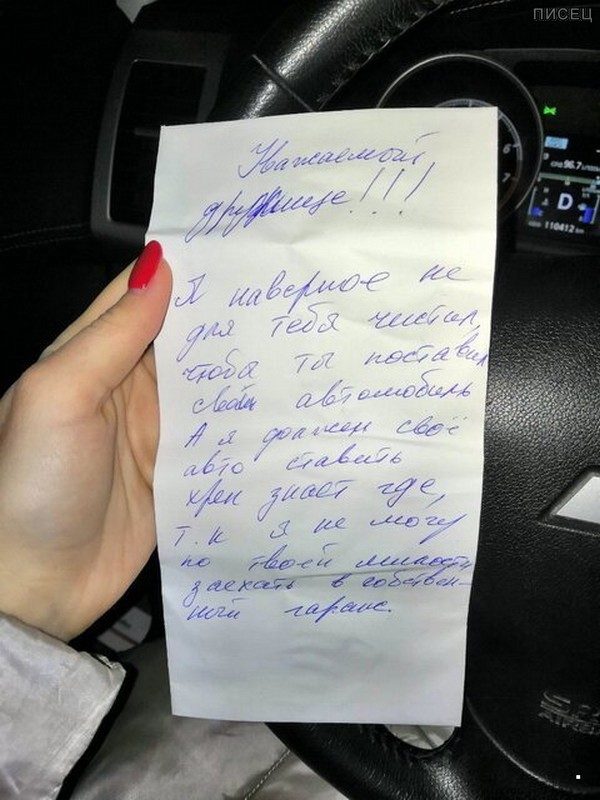 ПИСЕЦ
Уважаемый
дружище!!!
Я наверное не
для тебя чистил,
чтобы ты поставил
свой автомобиль
А я должен своё
авто ставить
хрен знает где,
т.к я не могу
по твоей милости
заехать в собствен-
ный гараж.
6
7
96.7
D
110412 km
AIRBAG